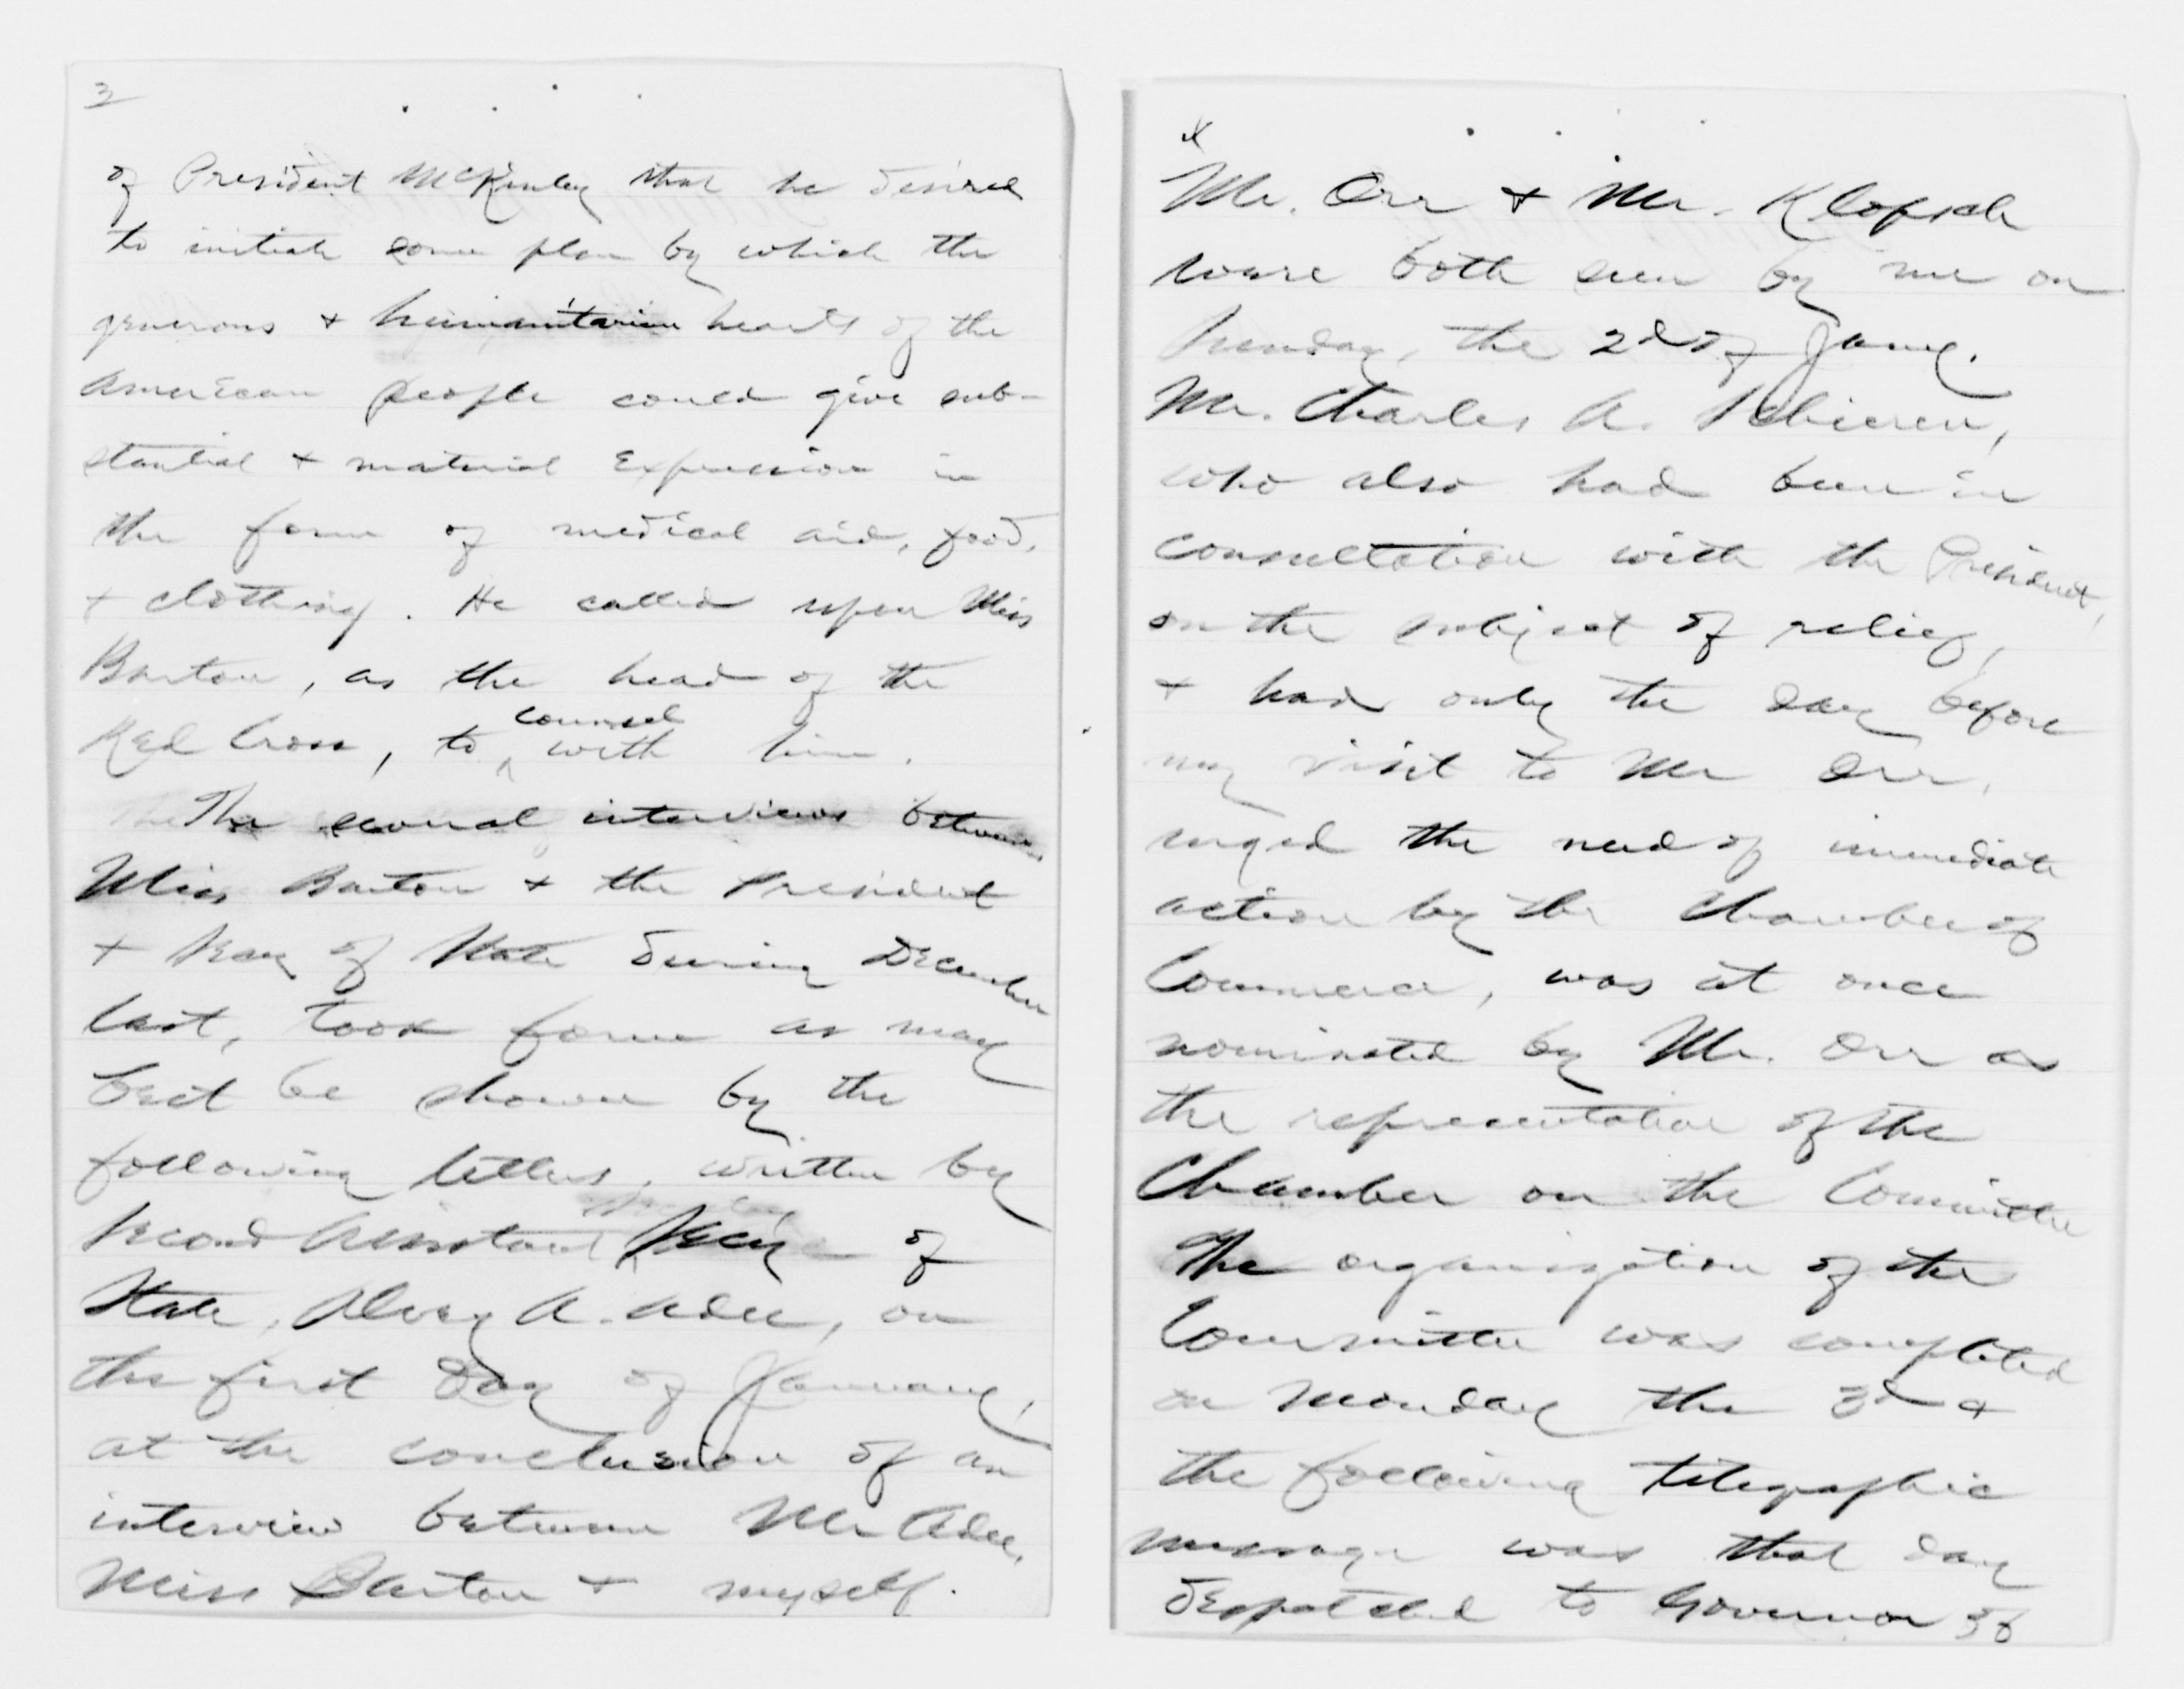 3
of President McKinley that he desired
to initiate some plan by which the
generous & humanitarian hearts of the
American people could give sub-
stantial & material expression in
the form of medical aid, food,
& clothing. He called upon Miss
Barton, as the head of the
Red Cross, to counsel with him.
The several interviews between
Miss Barton & the President
& Secy of State during December
last, took form as may
best be shown by the
following letters, written by
Second Assistant Secy of
State, Alvey A. Adee, on
the first day of January,
at the conclusion of an
interview between Mr Adee,
Miss Barton & myself.
4
Mr. Orr & Mr. Klopsch
were both seen by me on
Sunday, the 2d of Jany.
Mr. Charles A. Schieren,
who also had been in
consultation with the President,
on the subject of relief,
& had only the day before
my visit to Mr Orr,
urged the need of immediate
action by the Chamber of
Commerce, was at once
nominated by Mr. Orr as
the representative of the
Chamber on the Committee
The organization of the
Committee was completed
on Monday the 3d &
the following telegraphic
message was that day
despatched to Governor